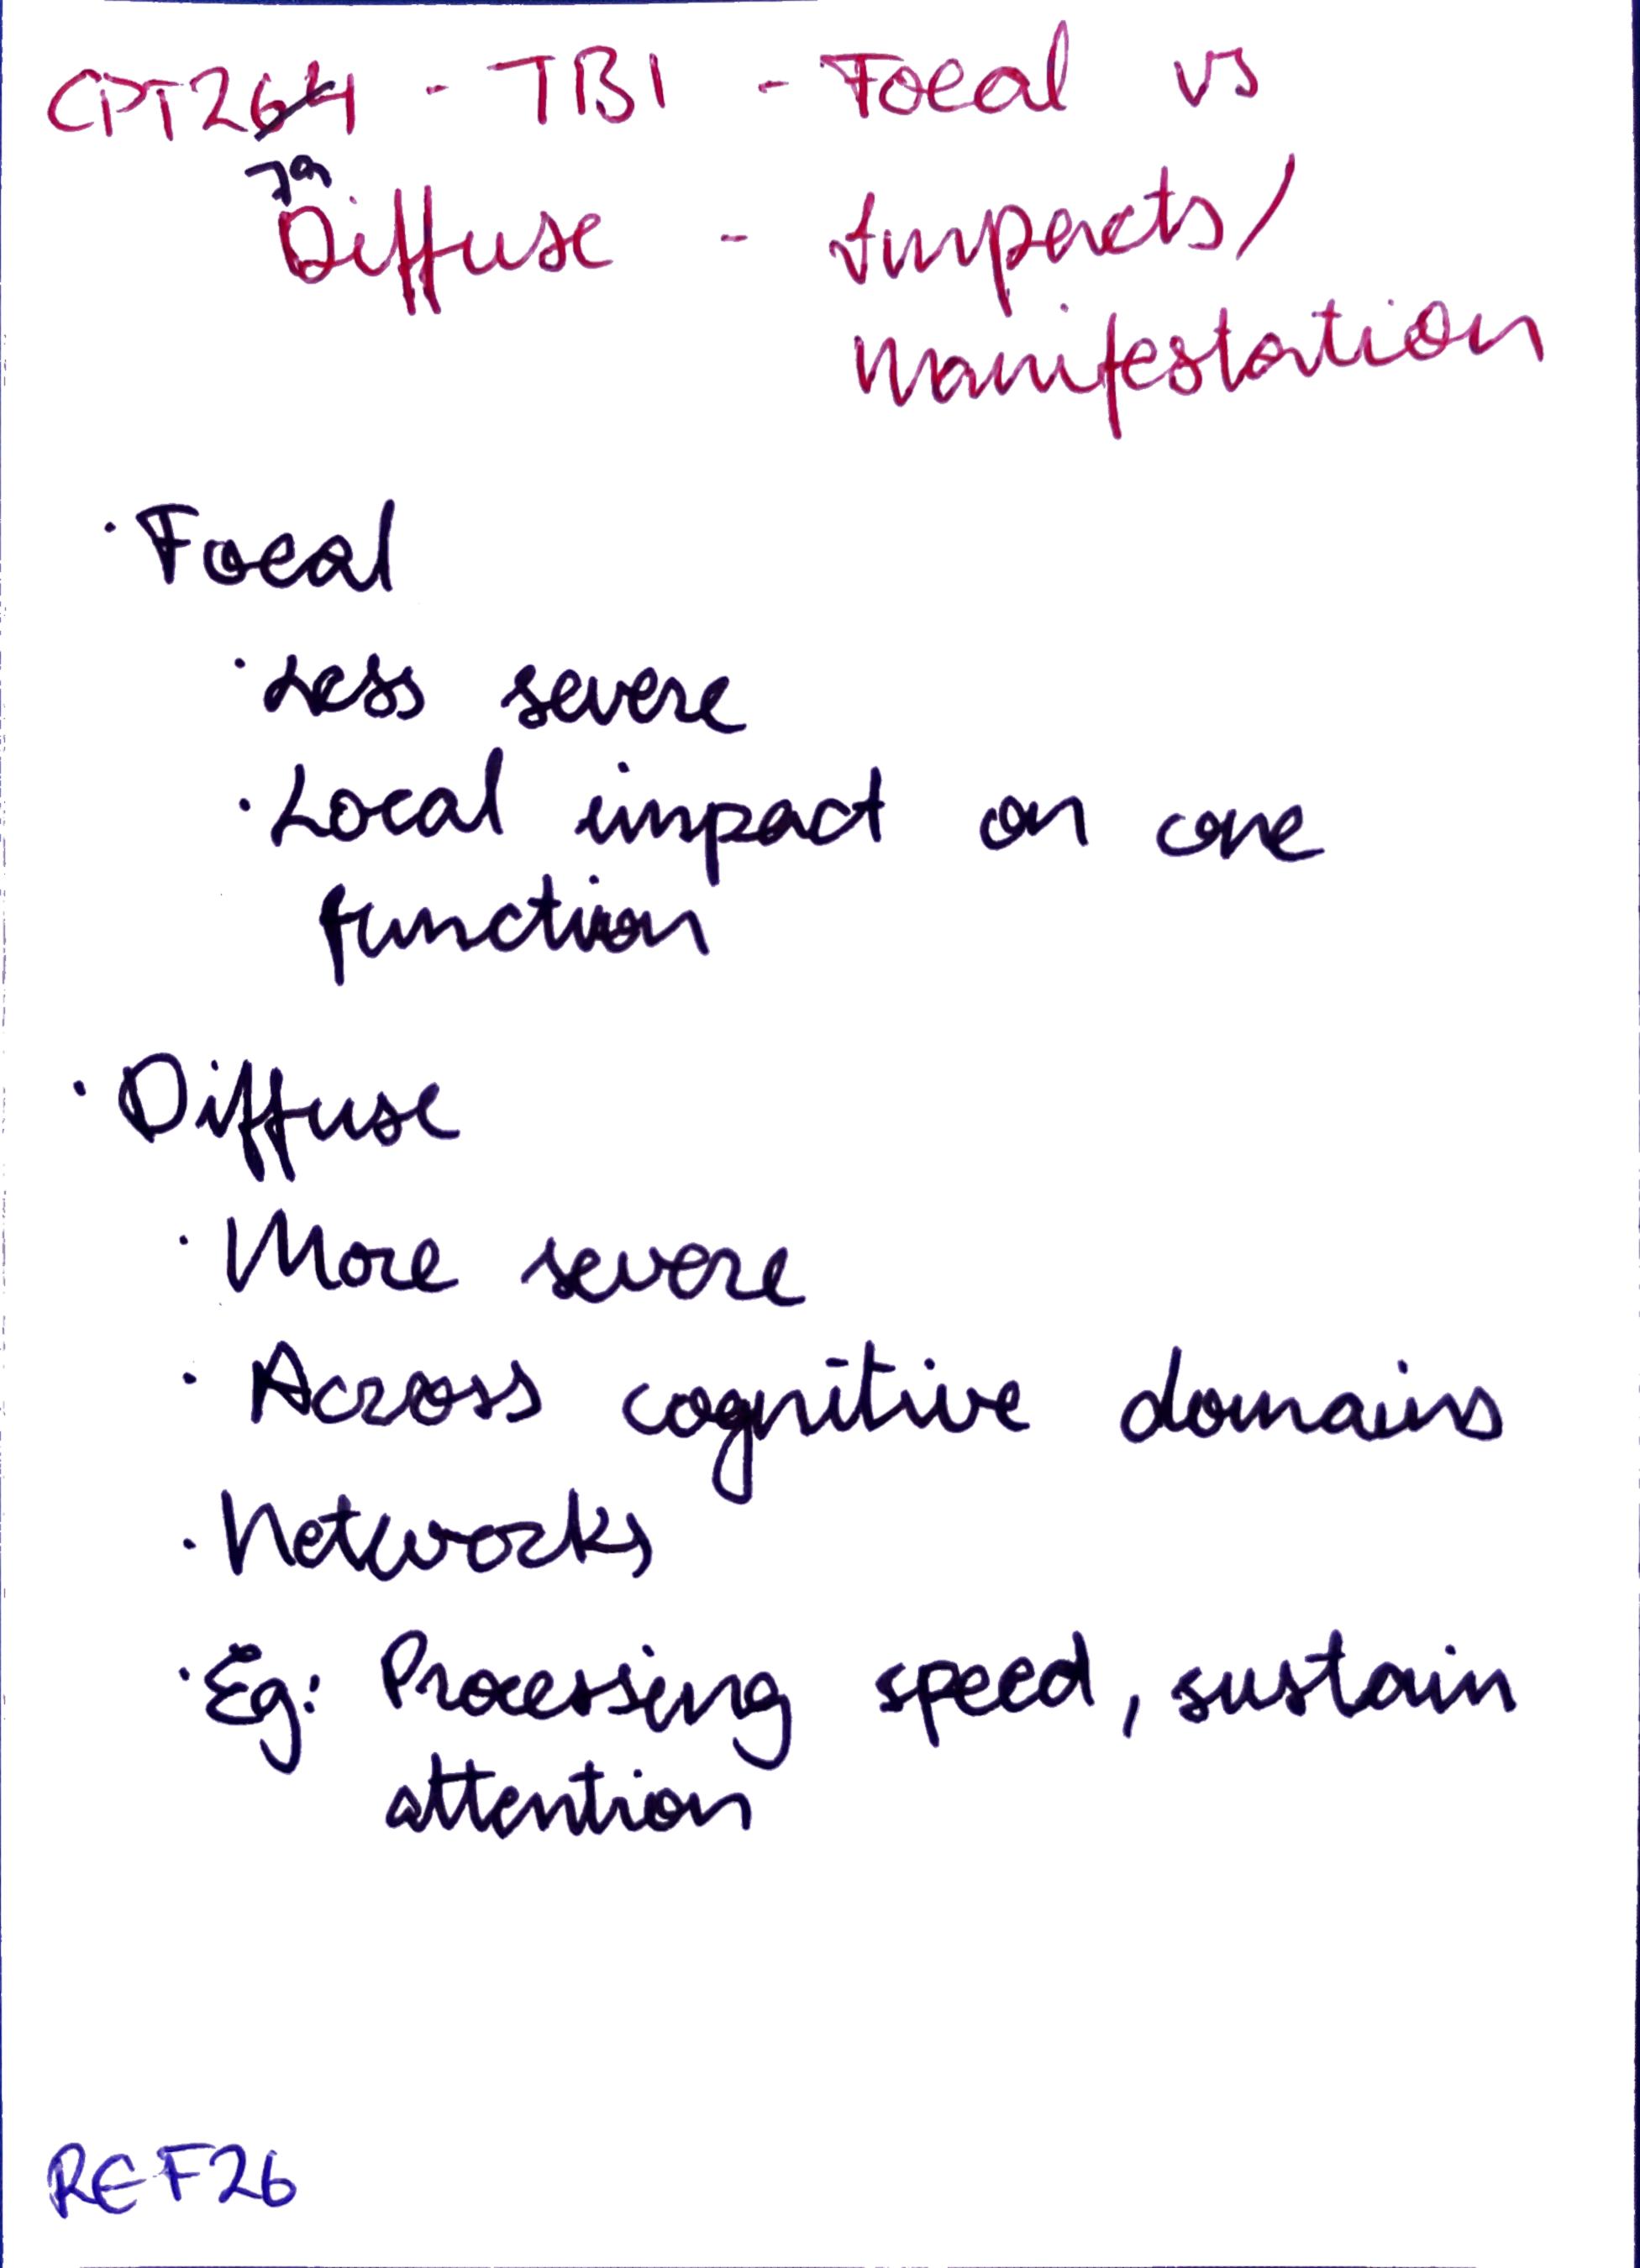 CPT264 - TBI - Focal vs
Diffuse - Impacts/
Manifestation
· Focal
· Less severe
· Local impact on one
function
· Diffuse
· More severe
· Across cognitive domains
· Networks
· Eg: Processing speed, sustain
attention
REF26